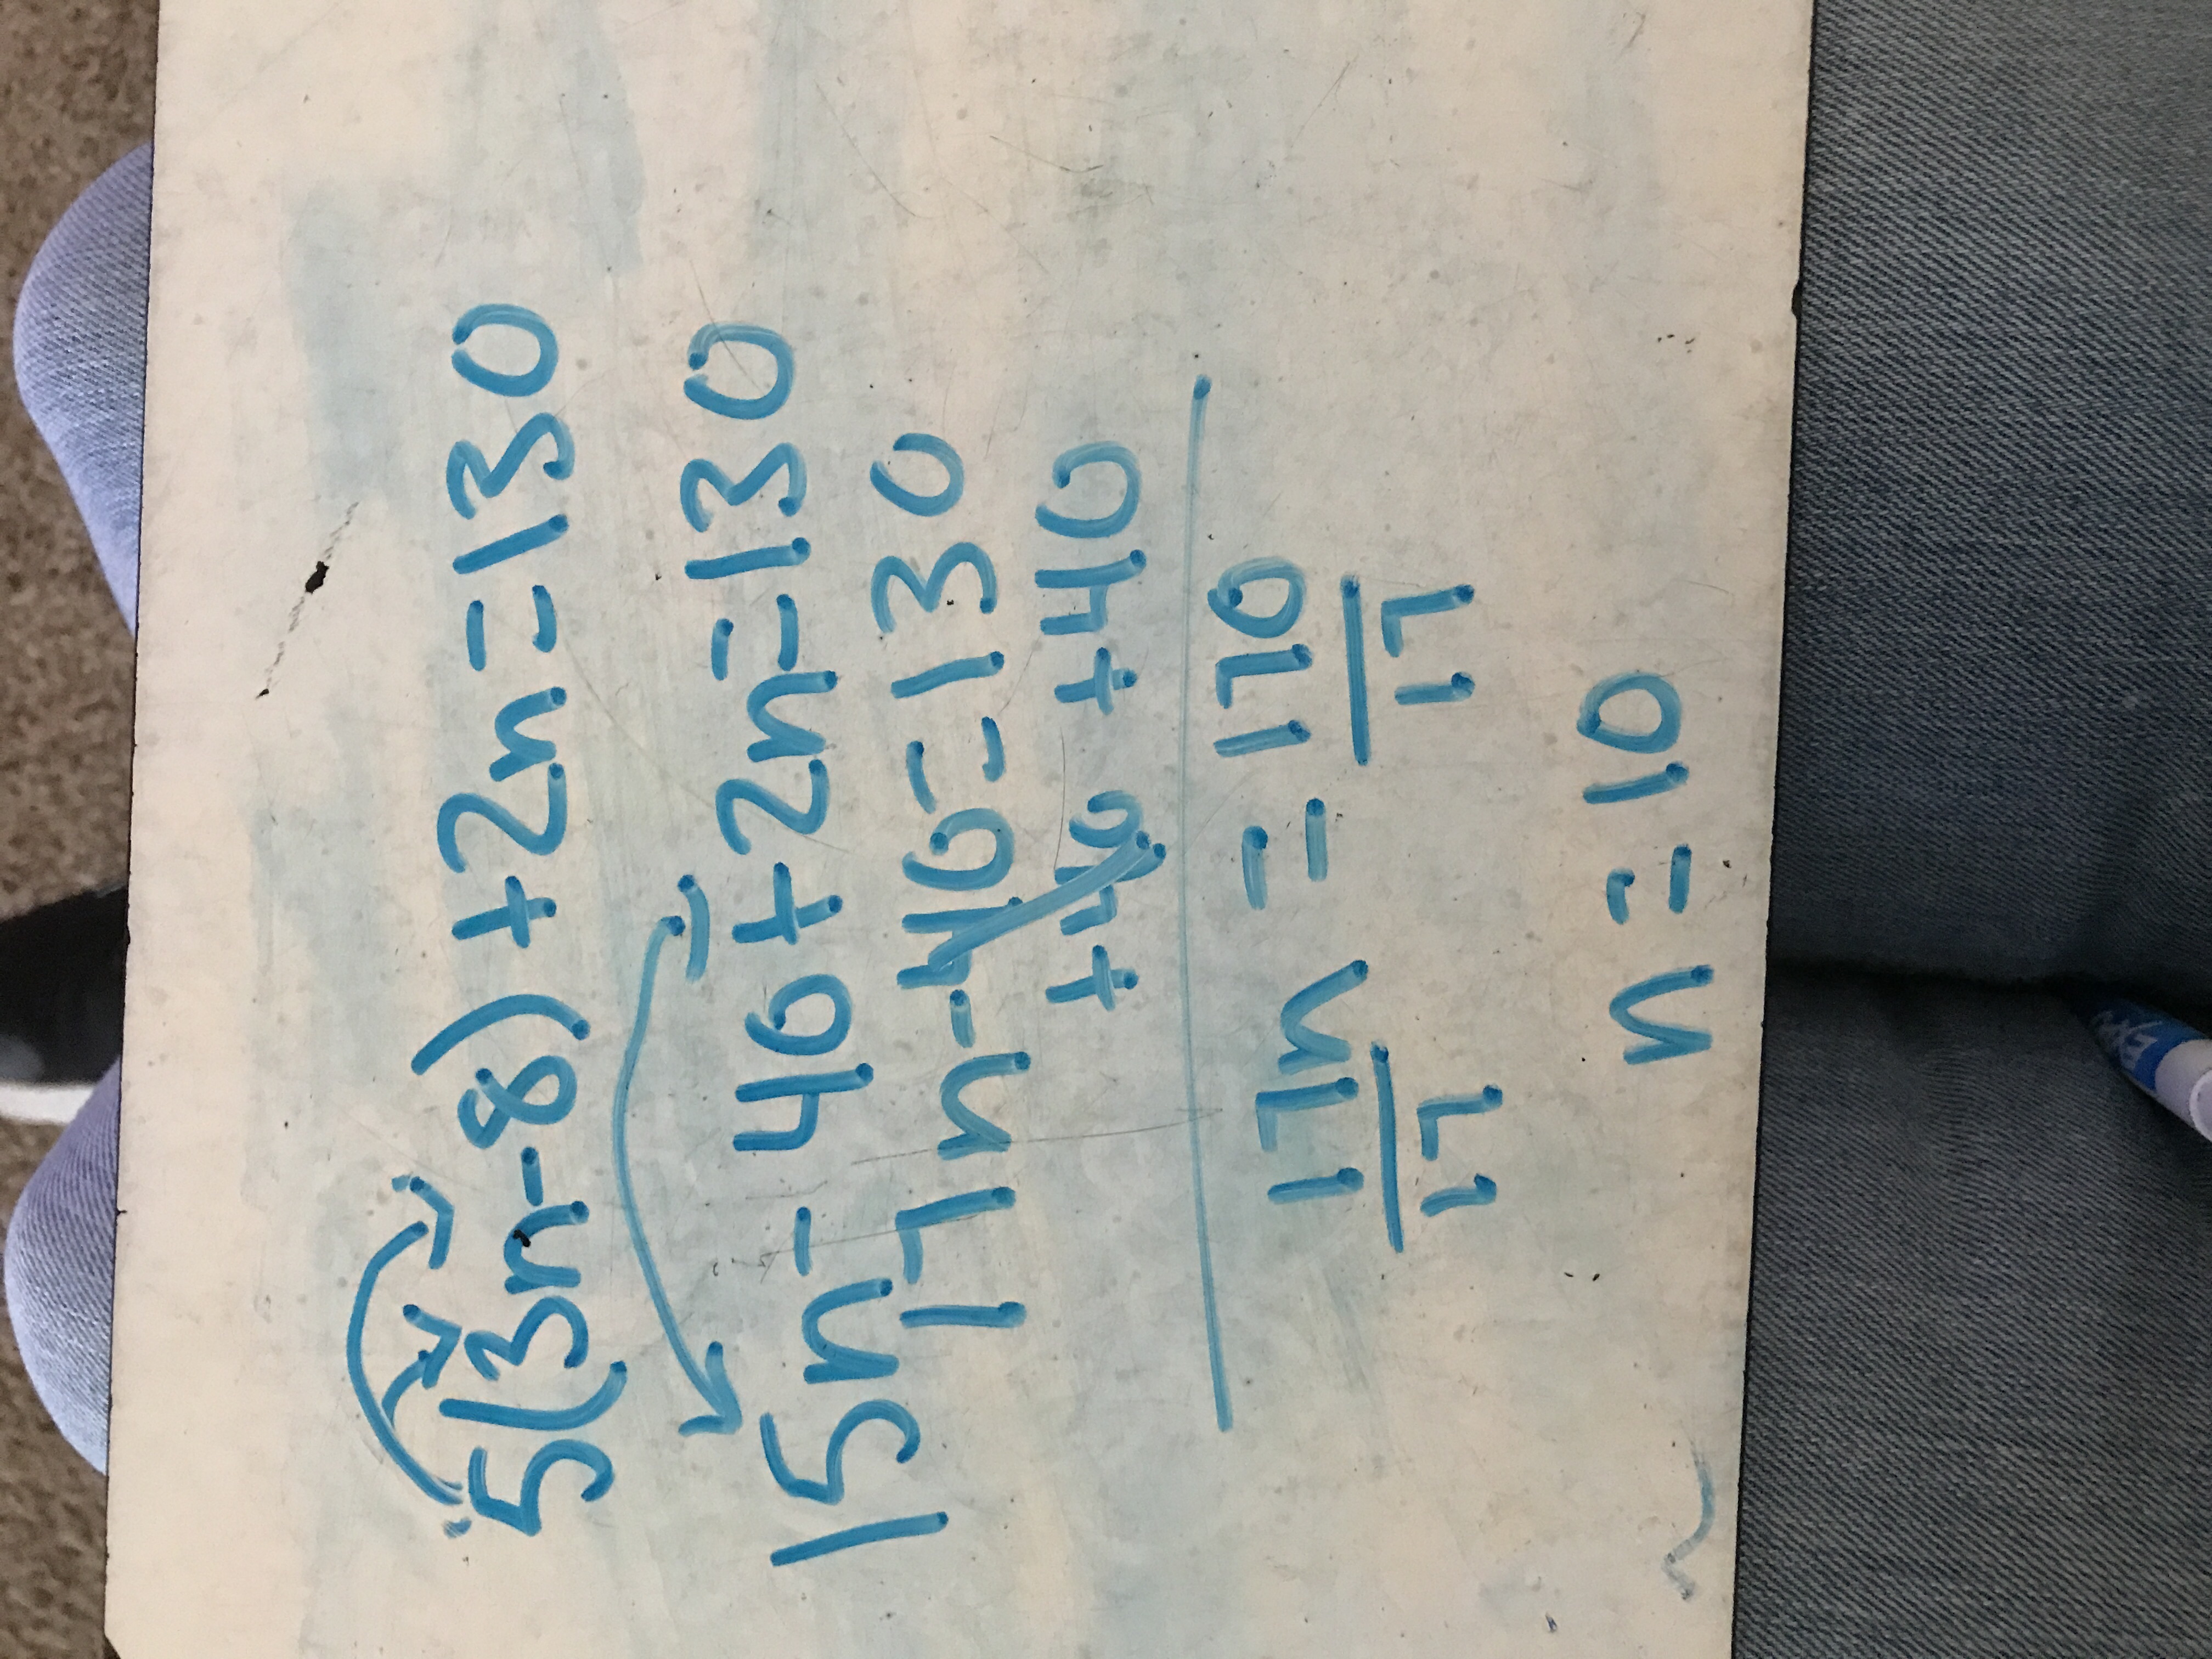 5(3n-8)+2n=130
15n-40+2n=130
17n-40=130
+40 +40
17n = 170
17 17
n = 10